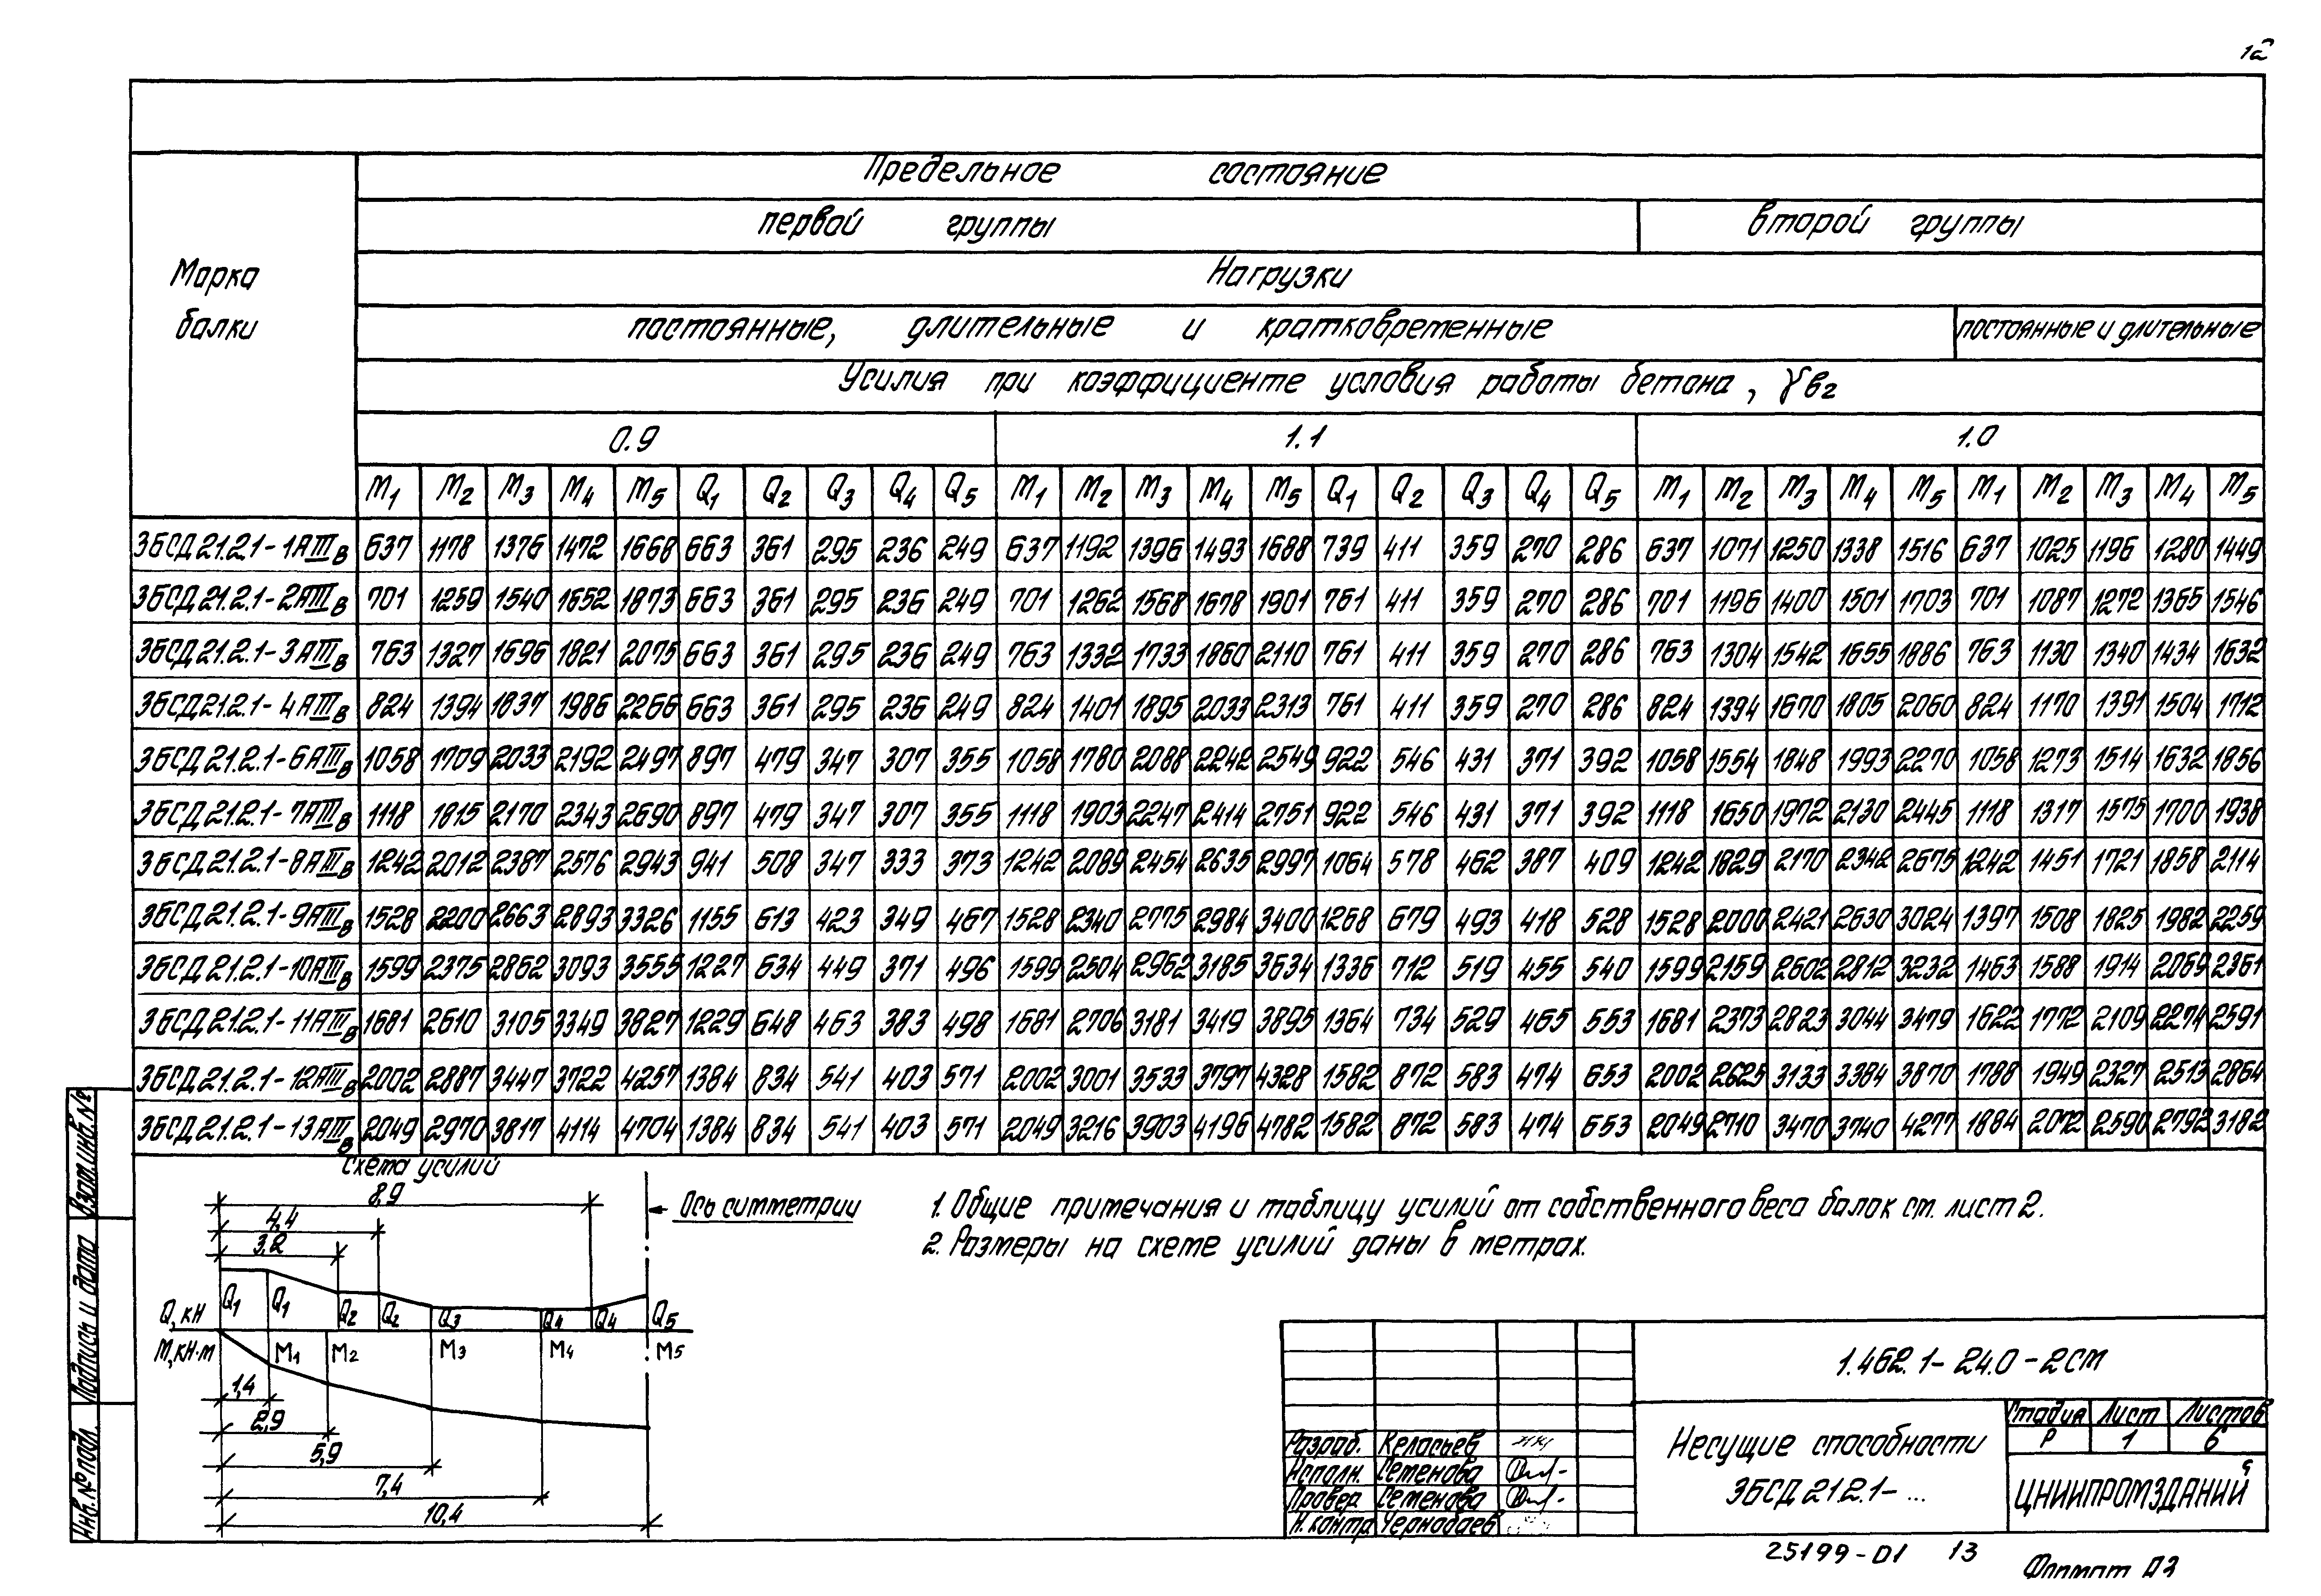 12
Предельное состояние
первой группы второй группы
Марка балки
Нагрузки
постоянные, длительные и кратковременные постоянные и длительные
Усилия при коэффициенте условия работы бетона, γв2
0.9 1.1 1.0
M1 M2 M3 M4 M5 Q1 Q2 Q3 Q4 Q5 M1 M2 M3 M4 M5 Q1 Q2 Q3 Q4 Q5 M1 M2 M3 M4 M5 M1 M2 M3 M4 M5
3БСД21.2.1-1АIIIв 637 1178 1376 1472 1668 663 361 295 236 249 637 1192 1396 1493 1688 739 411 359 270 286 637 1071 1250 1338 1516 637 1025 1196 1280 1449
3БСД21.2.1-2АIIIв 701 1259 1540 1652 1873 663 361 295 236 249 701 1262 1568 1678 1901 761 411 359 270 286 701 1196 1400 1501 1703 701 1087 1272 1365 1546
3БСД21.2.1-3АIIIв 763 1327 1696 1821 2075 663 361 295 236 249 763 1332 1733 1860 2110 761 411 359 270 286 763 1304 1542 1655 1886 763 1130 1340 1434 1632
3БСД21.2.1-4АIIIв 824 1394 1837 1986 2266 663 361 295 236 249 824 1401 1895 2033 2313 761 411 359 270 286 824 1394 1670 1805 2060 824 1170 1391 1504 1712
3БСД21.2.1-6АIIIв 1058 1709 2033 2192 2497 897 479 347 307 355 1058 1780 2088 2242 2549 922 546 431 371 392 1058 1554 1848 1993 2270 1058 1273 1514 1632 1856
3БСД21.2.1-7АIIIв 1118 1815 2170 2343 2690 897 479 347 307 355 1118 1903 2247 2414 2751 922 546 431 371 392 1118 1650 1972 2130 2445 1118 1317 1575 1700 1938
3БСД21.2.1-8АIIIв 1242 2012 2387 2576 2943 941 508 347 333 373 1242 2089 2454 2635 2997 1064 578 462 387 409 1242 1829 2170 2342 2675 1242 1451 1721 1858 2114
3БСД21.2.1-9АIIIв 1528 2200 2663 2893 3326 1155 613 423 349 467 1528 2340 2775 2984 3400 1268 679 493 418 528 1528 2000 2421 2630 3024 1397 1508 1825 1982 2259
3БСД21.2.1-10АIIIв 1599 2375 2862 3093 3555 1227 634 449 371 496 1599 2504 2962 3185 3634 1336 712 519 455 540 1599 2159 2602 2812 3232 1463 1588 1914 2069 2361
3БСД21.2.1-11АIIIв 1681 2610 3105 3349 3827 1229 648 463 383 498 1681 2706 3181 3419 3895 1364 734 529 465 553 1681 2373 2823 3044 3479 1622 1772 2109 2274 2591
3БСД21.2.1-12АIIIв 2002 2887 3447 3722 4257 1384 834 541 403 571 2002 3001 3533 3797 4328 1582 872 583 474 653 2002 2625 3133 3384 3870 1788 1949 2327 2513 2864
3БСД21.2.1-13АIIIв 2049 2970 3817 4114 4704 1384 834 541 403 571 2049 3216 3903 4196 4782 1582 872 583 474 653 2049 2710 3470 3740 4277 1884 2072 2590 2792 3182
Схема усилий
8,9
4,4
3,2
Ось симметрии
Q,кН Q1 Q1 Q2 Q2 Q3 Q4 Q4 Q5
М,кН·м M1 M2 M3 M4 M5
1,4
2,9
5,9
7,4
10,4
1. Общие примечания и таблицу усилий от собственного веса балок см. лист 2.
2. Размеры на схеме усилий даны в метрах.
Взам.инв.№
Подпись и дата
Инв.№ подл.
1.462.1-24.0-2СМ
Разраб. Келасьев
Исполн. Семенова
Провер. Семенова
Н.контр. Чернобаев
Несущие способности
3БСД21.2.1-...
Стадия Лист Листов
Р 1 6
ЦНИИПРОМЗДАНИЙ
25199-01 13
Формат А3